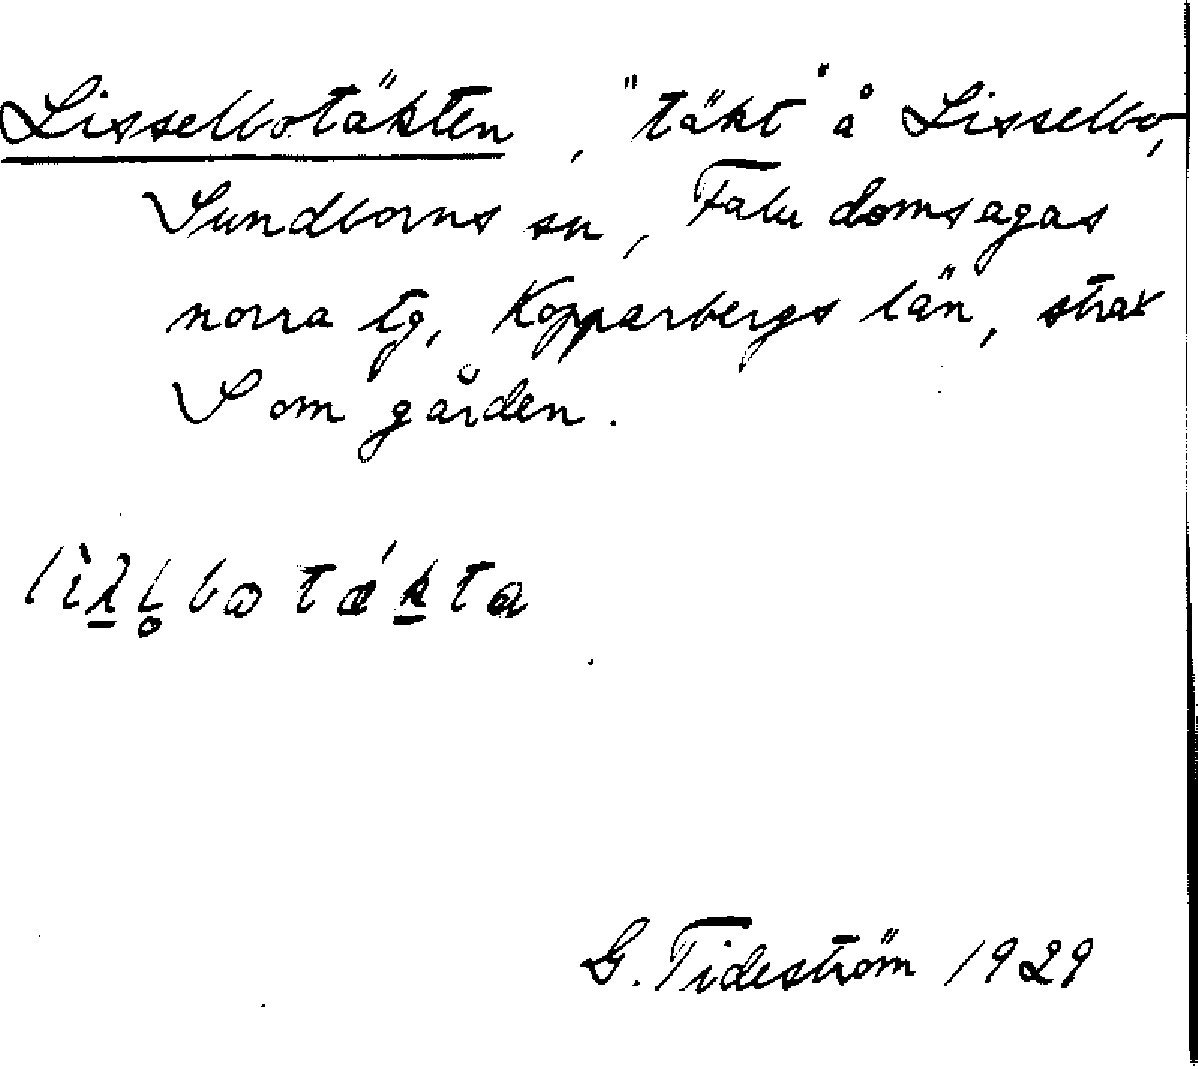 Lisselbotäkten, "täkt" å Lisselbo,
Sundborns sn, Falu domsagas
norra tg, Kopparbergs län, strax
S om gården.
G. Tideström 1929